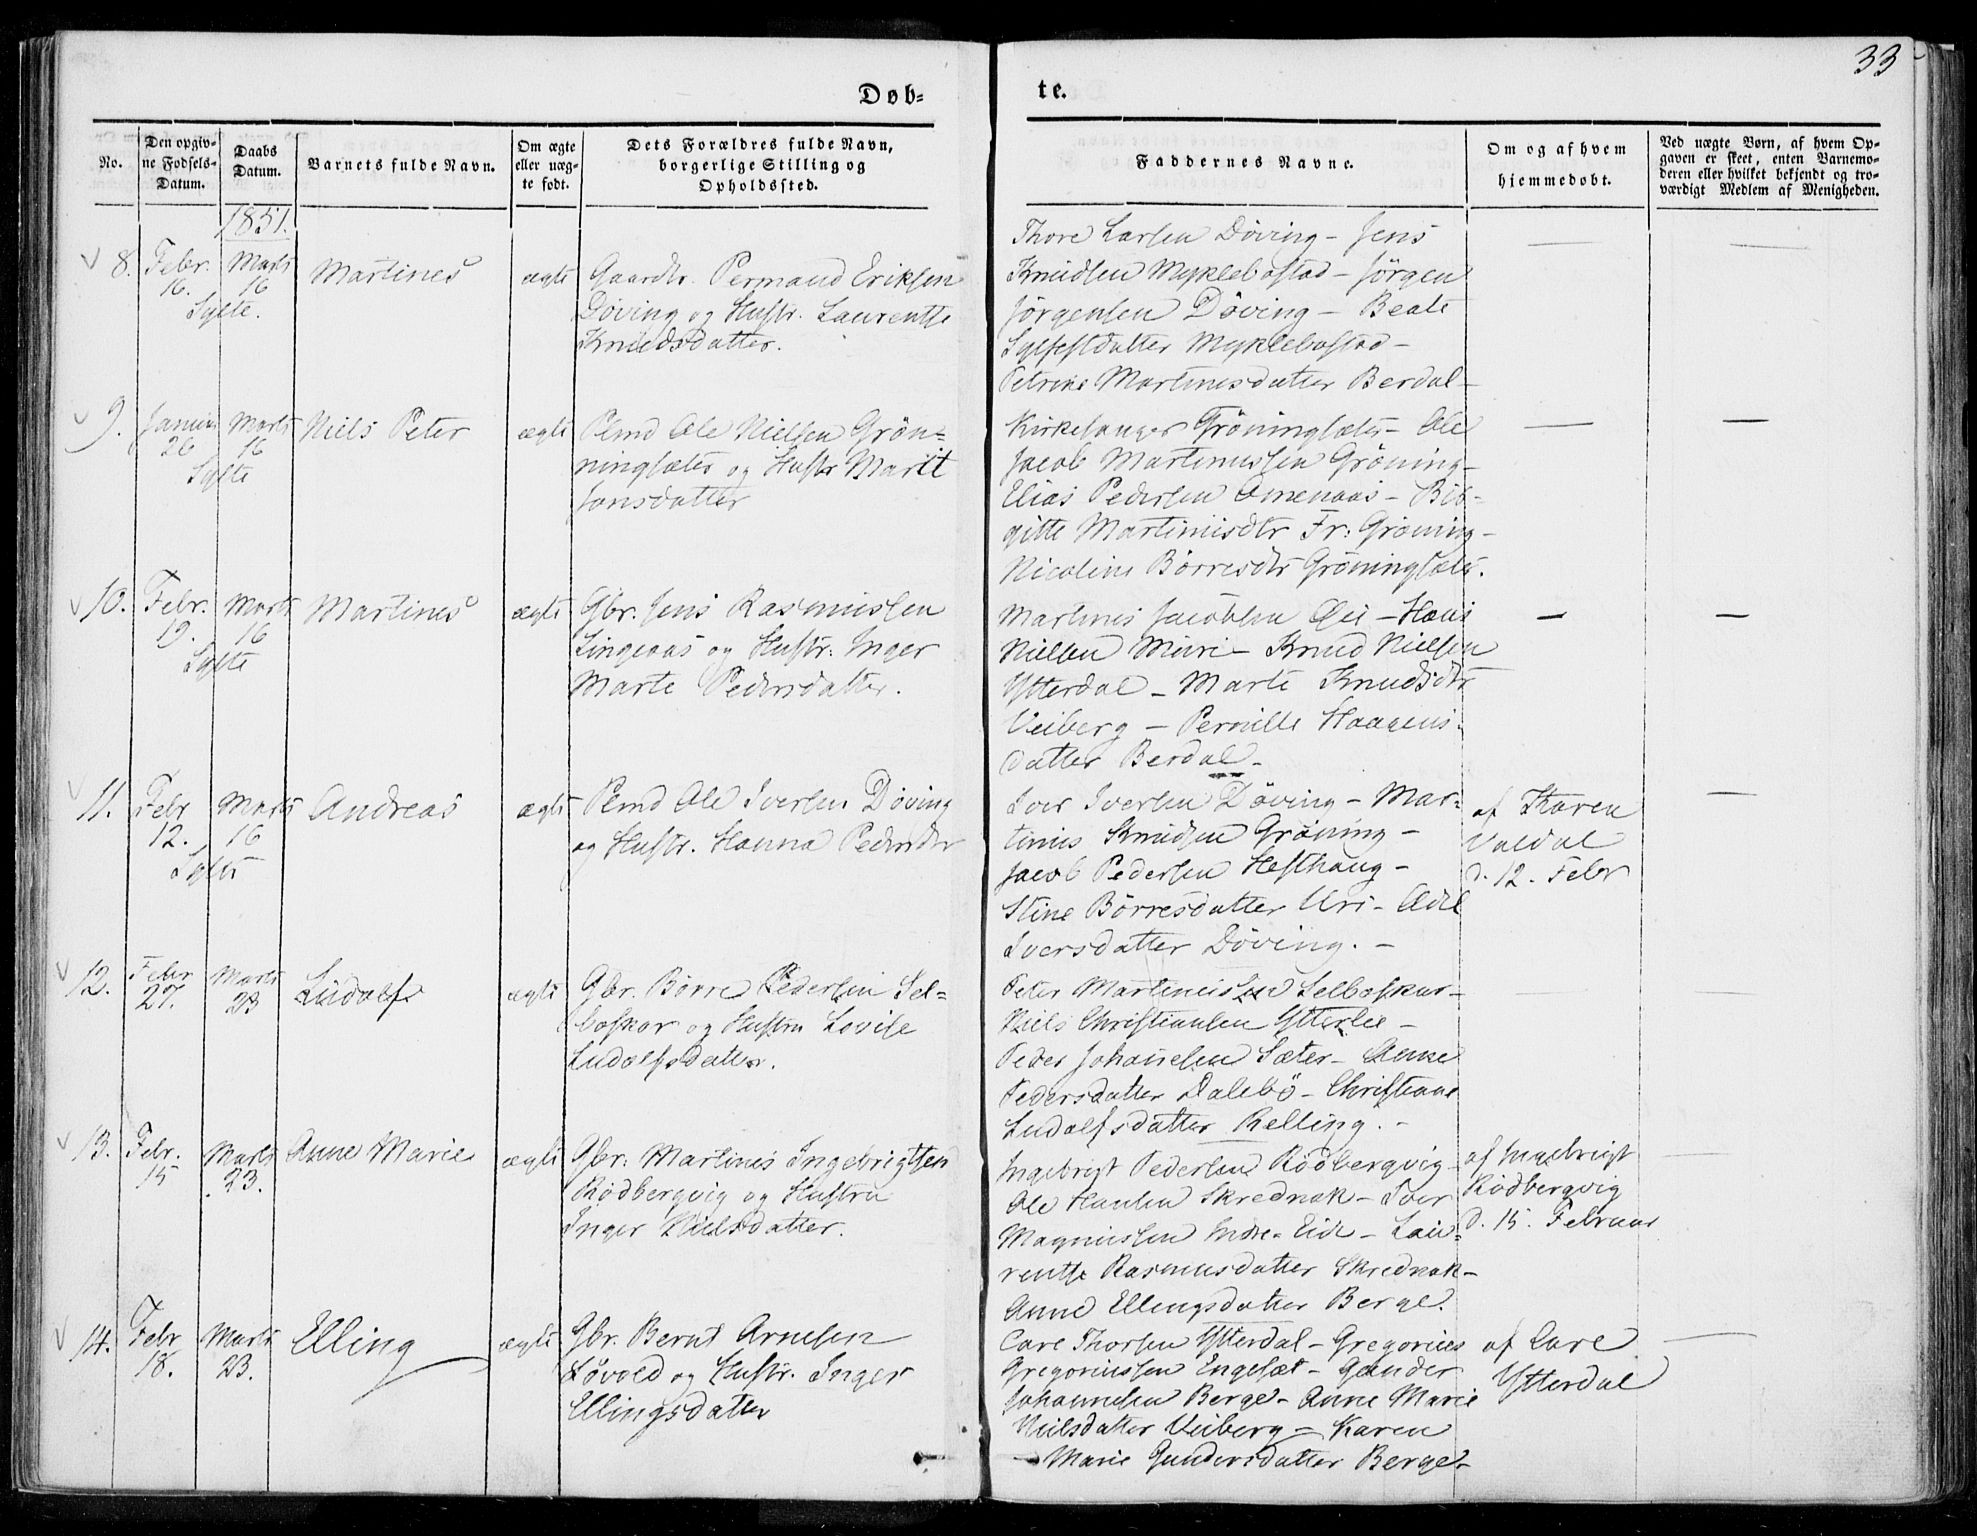 33
Døb-
te.
No.
Den opgiv-
ne Fødsels-
Datum.
Daabs
Datum.
Barnets fulde Navn.
Om ægte
eller uæg-
te født.
Dets Forældres fulde Navn,
borgerlige Stilling og
Opholdssted.
Faddernes Navne.
Om og af hvem
hjemmedøbt.
Ved uægte Børn, af hvem Op-
gaven er skeet, enten Barnemo-
deren eller hvilket bekjendt og tro-
værdigt Medlem af Menigheden.
1851.
8.
Febr.
16.
Marts
16
Sylte.
Martines
ægte
Gaardbr. Permand Eriksen
Döving og Hustr. Laurentse
Knudsdatter.
Thore Larsen Döving - Jens
Knudsen Myklebostad - Jörgen
Jörgensen Döving - Beate
Sylfestdatter Myklebostad -
Petrine Martinusdatter Berdal -
9.
Januar
26
Marts
16
Sylte
Niels Peter
ægte
Pmd Ole Nielsen Grön-
ningsæter og Hustr Marit
Jonsdatter
Kirkesanger Gröningsæter - Ole
Jacob Martinussen Gröning -
Elias Pedersen Omenaas - Bir-
gitte Martinusdtr Fr: Gröning -
Nicoline Börresdtr Gröningsæter.
10.
Febr.
19.
Marts
16
Sylte
Martines
ægte
Gbr. Jens Rasmussen
Lingeaas og Hustr: Inger
Marte Pedersdatter.
Martinus Jacobsen Öie - Hans
Nielsen Muri - Knud Nielsen
Ytterdal - Marte Knudsdtr
Veiberg - Pernille Haagens-
datter Berdal -
11.
Febr
12.
Marts
16
Sylte
Andreas
ægte
Pmd Ole Iversen Döving
og Hustr. Hanna Pedersdtr
Iver Iversen Döving - Mar-
tinus Knudsen Gröning -
Jacob Pedersen Hesthaug -
Stine Börresdatter Uri - Odil
Iversdatter Döving. -
af Karen
Valdal
d. 12. Febr
12.
Febr
27.
Marts
23
Ludolf
ægte
Gbr. Börre Pedersen Sel-
boskar og Hustru Lovise
Ludolfsdatter.
Peter Martinussen Selboskar -
Niels Christiansen Ytterlie -
Peder Johannesen Sæter - Anne
Pedersdatter Dalebö - Christiane
Ludolfsdatter Relling. -
13.
Febr.
15
Marts
23.
Anne Marie
ægte
Gbr: Martinus Ingebrigtsen
Rödbergvig og Hustru
Inger Nielsdatter.
Ingebrigt Pedersen Rödbergvig -
Ole Hansen Skrednak - Iver
Magnussen Indre-Eide - Lau-
rentse Rasmusdatter Skrednak -
Anne Ellingsdatter Berge.
af Ingebrigt
Rödbergvig
d. 15. Februar
14.
Febr
18.
Marts
23.
Elling
ægte
Gbr. Bernt Arnesen
Lövold og Hustr. Inger
Ellingsdatter
Care Thorsen Ytterdal - Gregorius
Gregoriussen Engeset - Gunder
Johannesen Berge - Anne Marie
Nielsdatter Veiberg - Karen
Marie Gundersdatter Berge -
af Care
Ytterdal